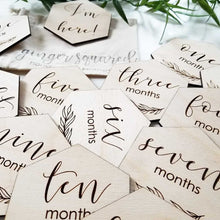 I'm
here!
gingersquared
one
three
months
five
months
six
months
nine
seven
months
ten
months